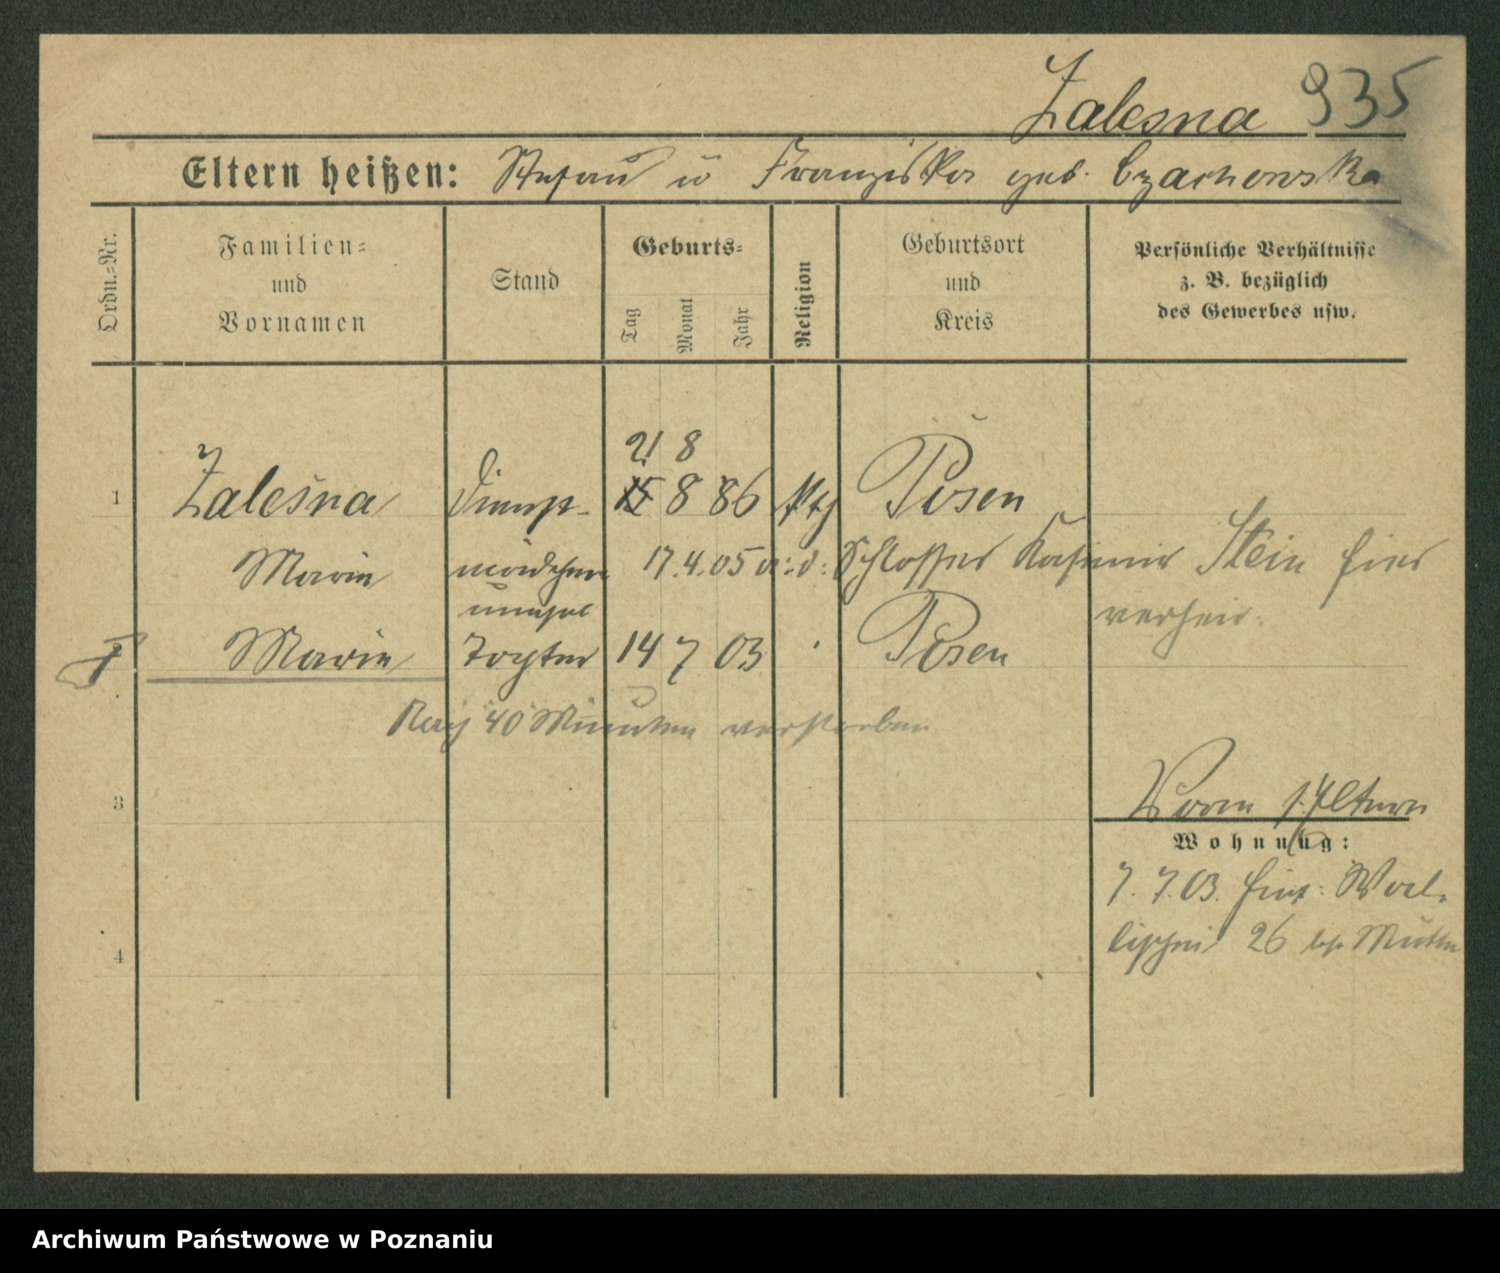 Zalesna 935
Eltern heißen: Stefan u Franziska geb. Czachowska
Ordn.=Nr.
Familien=
und
Vornamen
Stand
Geburts=
Tag
Monat
Jahr
Religion
Geburtsort
und
Kreis
Persönliche Verhältnisse
z. B. bezüglich
des Gewerbes usw.
21 8
1 Zalesna Dienst- 15 8 86 kth Posen
Marie mädchen 17.4.05 a. d. Schlosser Kasimir Stein hier
unehel verheir.
† Marie Tochter 14 7 03 Posen
Nach 40 Minuten verstorben
3
Vorm s. Eltern
Wohnung:
7. 7. 03. Wal-
lischei 26 bei Mutter
4
Archiwum Państwowe w Poznaniu